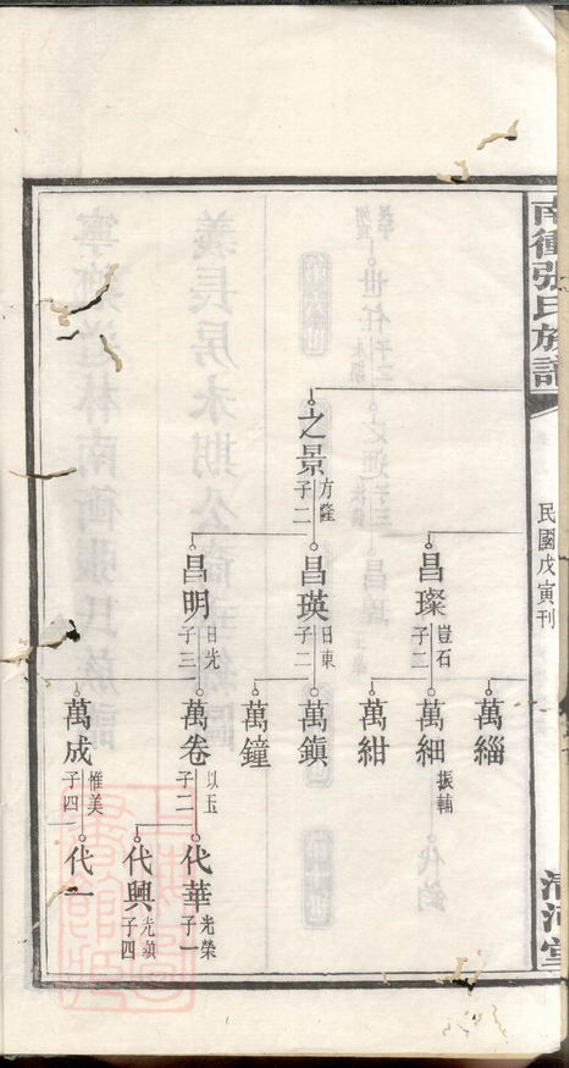 南衝張氏族譜
民國戊寅刊
清河堂
萬緇
昌璨
豈石
子二
萬細
振輔
萬紺
之景
方隆
子二
昌瑛
日東
子二
萬鎮
萬鐘
昌明
日光
子三
萬卷
以玉
子二
代華
光榮
子一
代興
光顯
子四
萬成
惟美
子四
代一